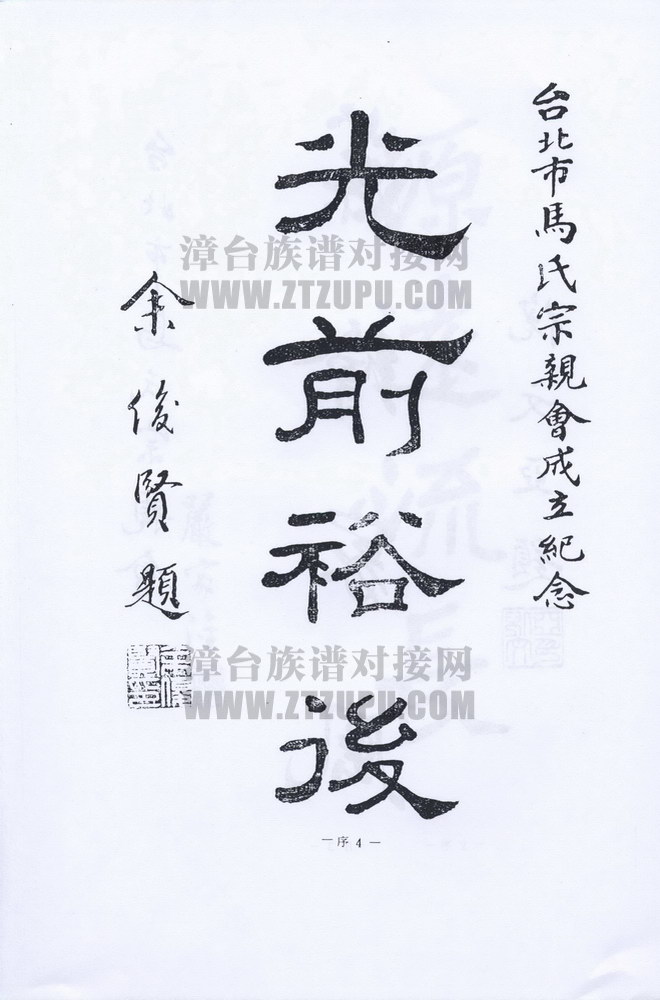 台北市馬氏宗親會成立紀念
光前裕後
余俊賢題
漳台族谱对接网
WWW.ZTZUPU.COM
漳台族谱对接网
WWW.ZTZUPU.COM
—序4—